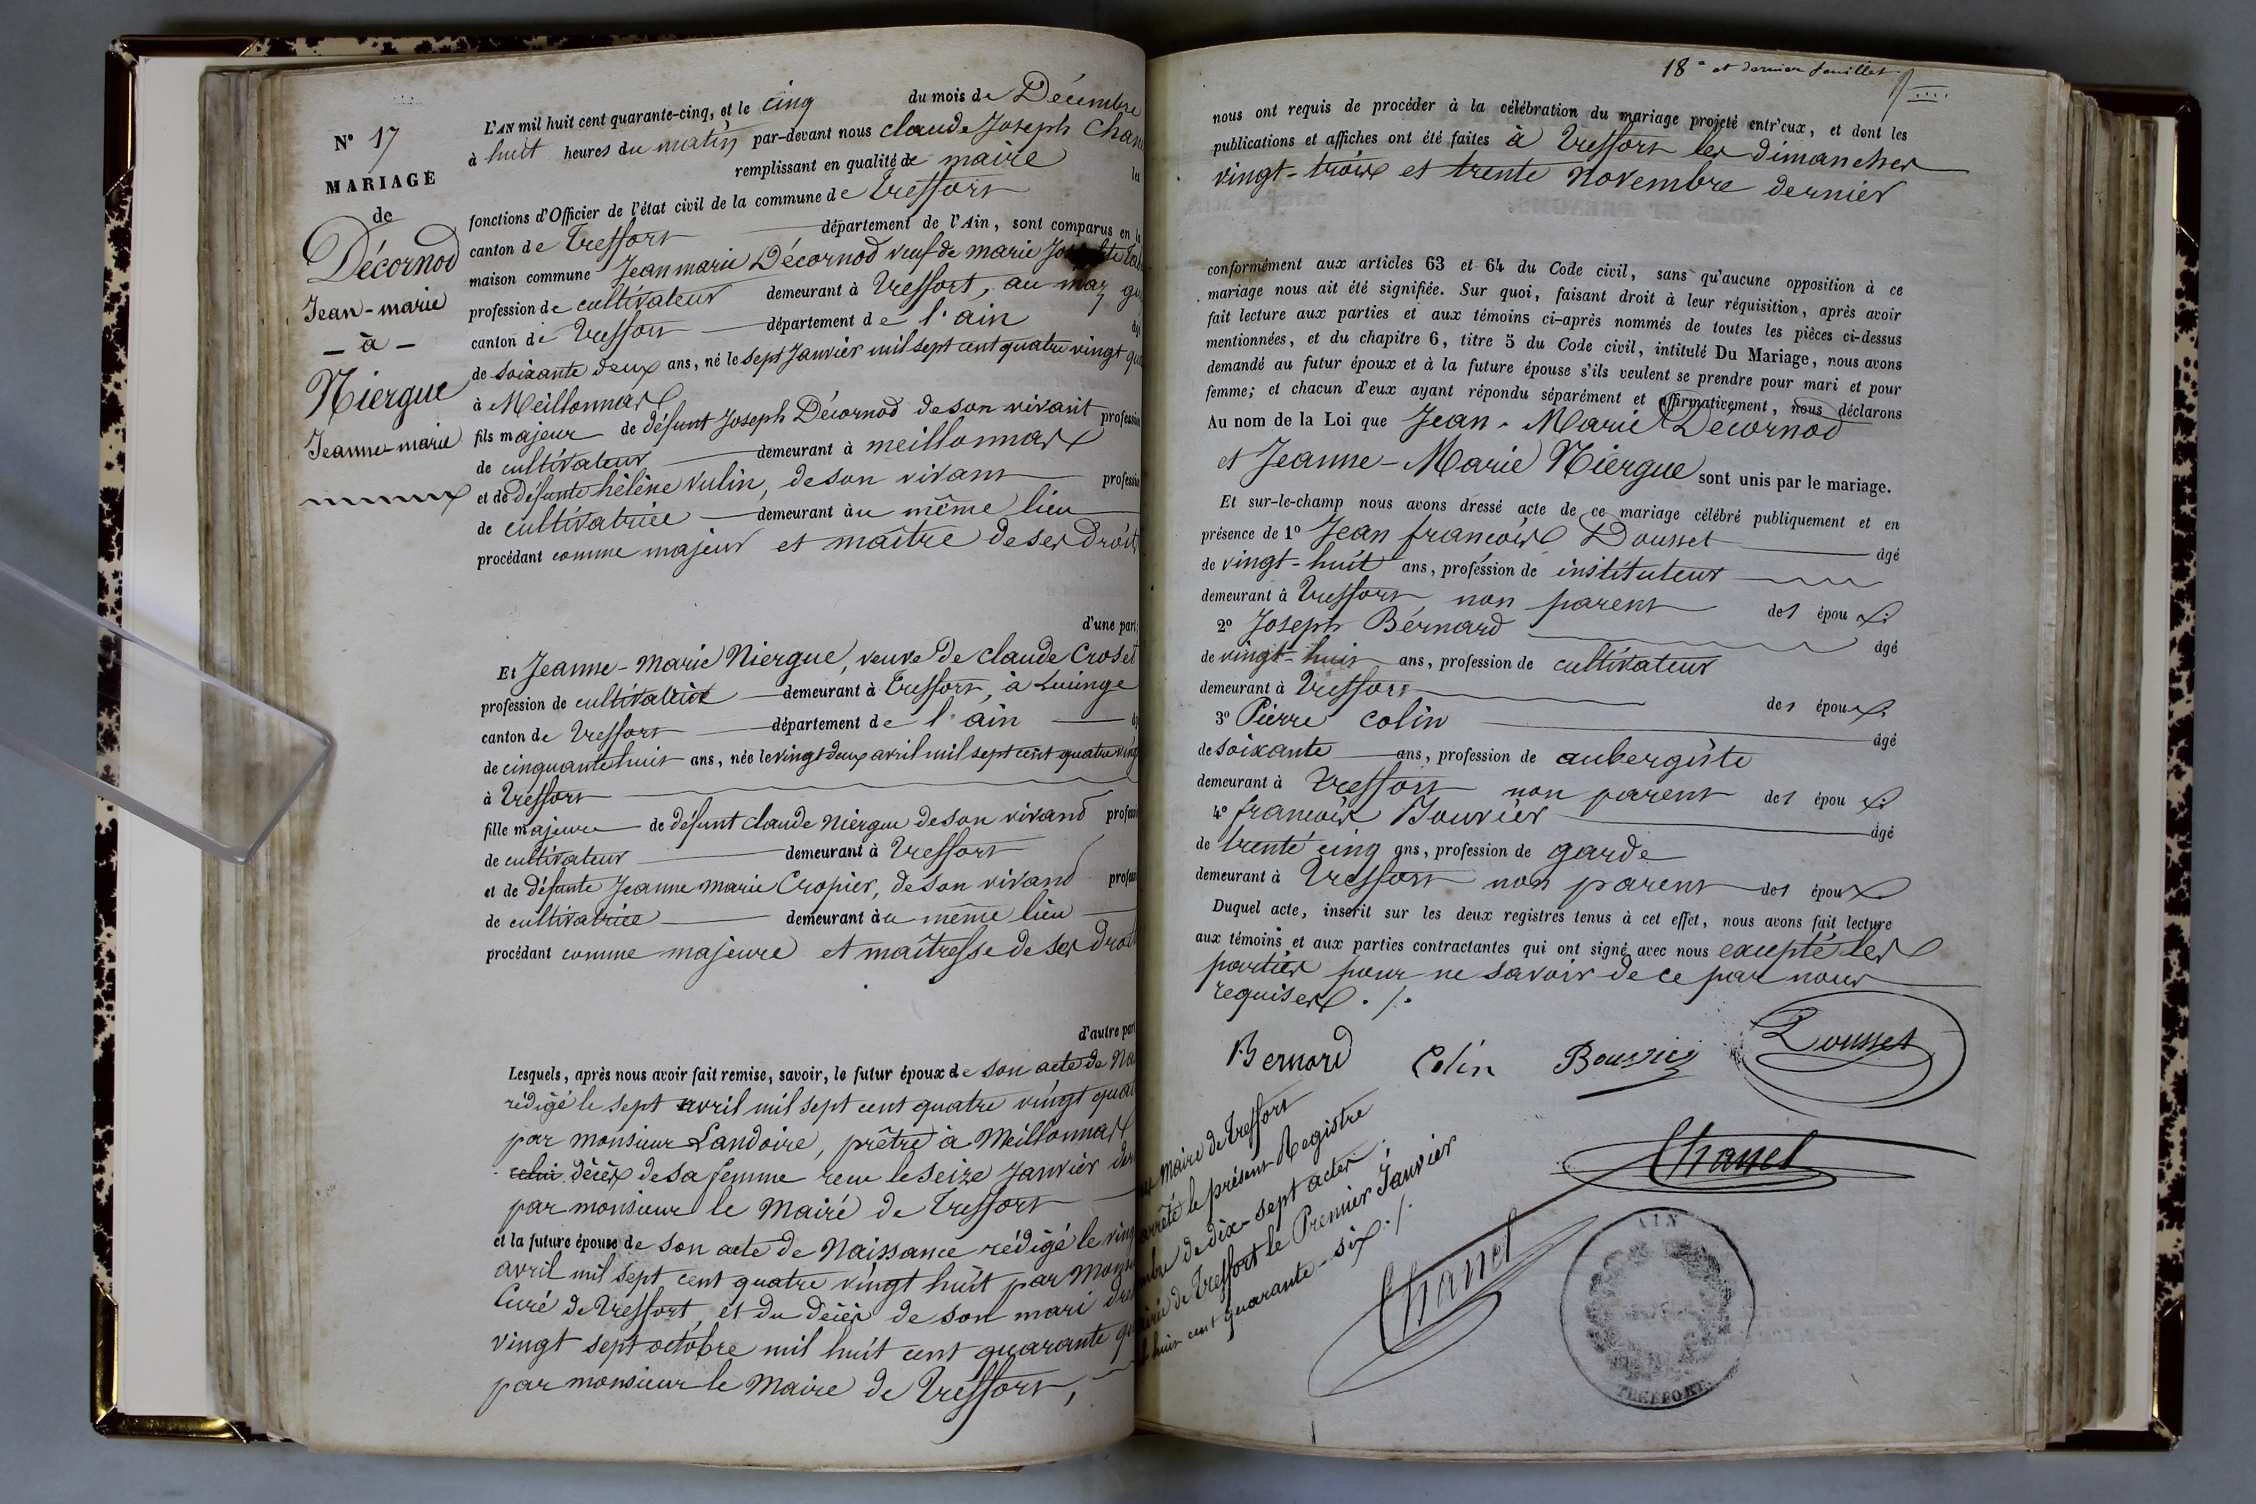 N° 17
MARIAGE
de
Décornod
Jean-marie
- à -
Niergue
Jeanne-marie
L'AN mil huit cent quarante-cinq, et le cinq du mois de Décembre
à huit heures du matin par-devant nous claude Joseph Chan
remplissant en qualité de maire les
fonctions d'Officier de l'état civil de la commune de Treffort
canton de Treffort département de l'Ain, sont comparus en la
maison commune Jean marie Décornod veuf de marie
profession de cultivateur demeurant à Treffort, au
canton de Treffort département de l'ain
de soixante deux ans, né le sept Janvier mil sept cent quatre vingt qua
à Meillonnas
fils majeur de défunt Joseph Décornod de son vivant profession
de cultivateur demeurant à meillonnas
et de défunte hélène Vulin, de son vivant profession
de cultivatrice demeurant au même lieu
procédant comme majeur et maître de ses droit
d'une part;
Et Jeanne-Marie Niergue, veuve de claude Croset
profession de cultivatrice demeurant à Treffort, à Lucinge
canton de Treffort département de l'ain
de cinquante huit ans, née le vingt deux avril mil sept cent quatre ving
à Treffort
fille majeure de défunt claude Niergue de son vivand profess
de cultivateur demeurant à Treffort
et de défunte Jeanne Marie Cropier, de son vivand profess
de cultivatrice demeurant au même lieu
procédant comme majeure et maîtresse de ses droit
d'autre part
Lesquels, après nous avoir fait remise, savoir, le futur époux de son acte de Na
rédigé le sept avril mil sept cent quatre vingt quat
par monsieur Landoire, prêtre à Meillonnas
celui décès de sa femme recu le seize Janvier der
par monsieur le Maire de Treffort
et la future épouse de son acte de Naissance rédigé le ving
avril mil sept cent quatre vingt huit par Mons
Curé de Treffort, et du décès de son mari dre
vingt sept octobre mil huit cent quarante qu
par monsieur le Maire de Treffort,
18e et dernier feuillet
nous ont requis de procéder à la célébration du mariage projeté entr'eux, et dont les
publications et affiches ont été faites à Treffort les dimanches
vingt-trois et trente Novembre dernier
conformément aux articles 63 et 64 du Code civil, sans qu'aucune opposition à ce
mariage nous ait été signifiée. Sur quoi, faisant droit à leur réquisition, après avoir
fait lecture aux parties et aux témoins ci-après nommés de toutes les pièces ci-dessus
mentionnées, et du chapitre 6, titre 5 du Code civil, intitulé Du Mariage, nous avons
demandé au futur époux et à la future épouse s'ils veulent se prendre pour mari et pour
femme; et chacun d'eux ayant répondu séparément et affirmativement, nous déclarons
Au nom de la Loi que Jean-Marie Décornod
et Jeanne-Marie Niergue sont unis par le mariage.
Et sur-le-champ nous avons dressé acte de ce mariage célébré publiquement et en
présence de 1° Jean francois Dousset âgé
de vingt-huit ans, profession de instituteur
demeurant à Treffort non parent des époux.
2° Joseph Bérnard âgé
de vingt-huit ans, profession de cultivateur
demeurant à Treffort des époux.
3° Pierre Colin âgé
de soixante ans, profession de aubergiste
demeurant à Treffort non parent des époux.
4° francois Bouvier âgé
de trente cinq ans, profession de garde
demeurant à Treffort non parent des époux
Duquel acte, inscrit sur les deux registres tenus à cet effet, nous avons fait lecture
aux témoins et aux parties contractantes qui ont signé avec nous excepté les
parties pour ne savoir de ce par nous
requises ./.
Bernard Colin Bouvier Dousset
Chanel
Maire de Treffort
arrêté le présent Registre
mbre de dix-sept actes.
irie de Treffort le Premier Janvier
huit cent quarante-six ./.
Chanel
AIN
TREFFORT